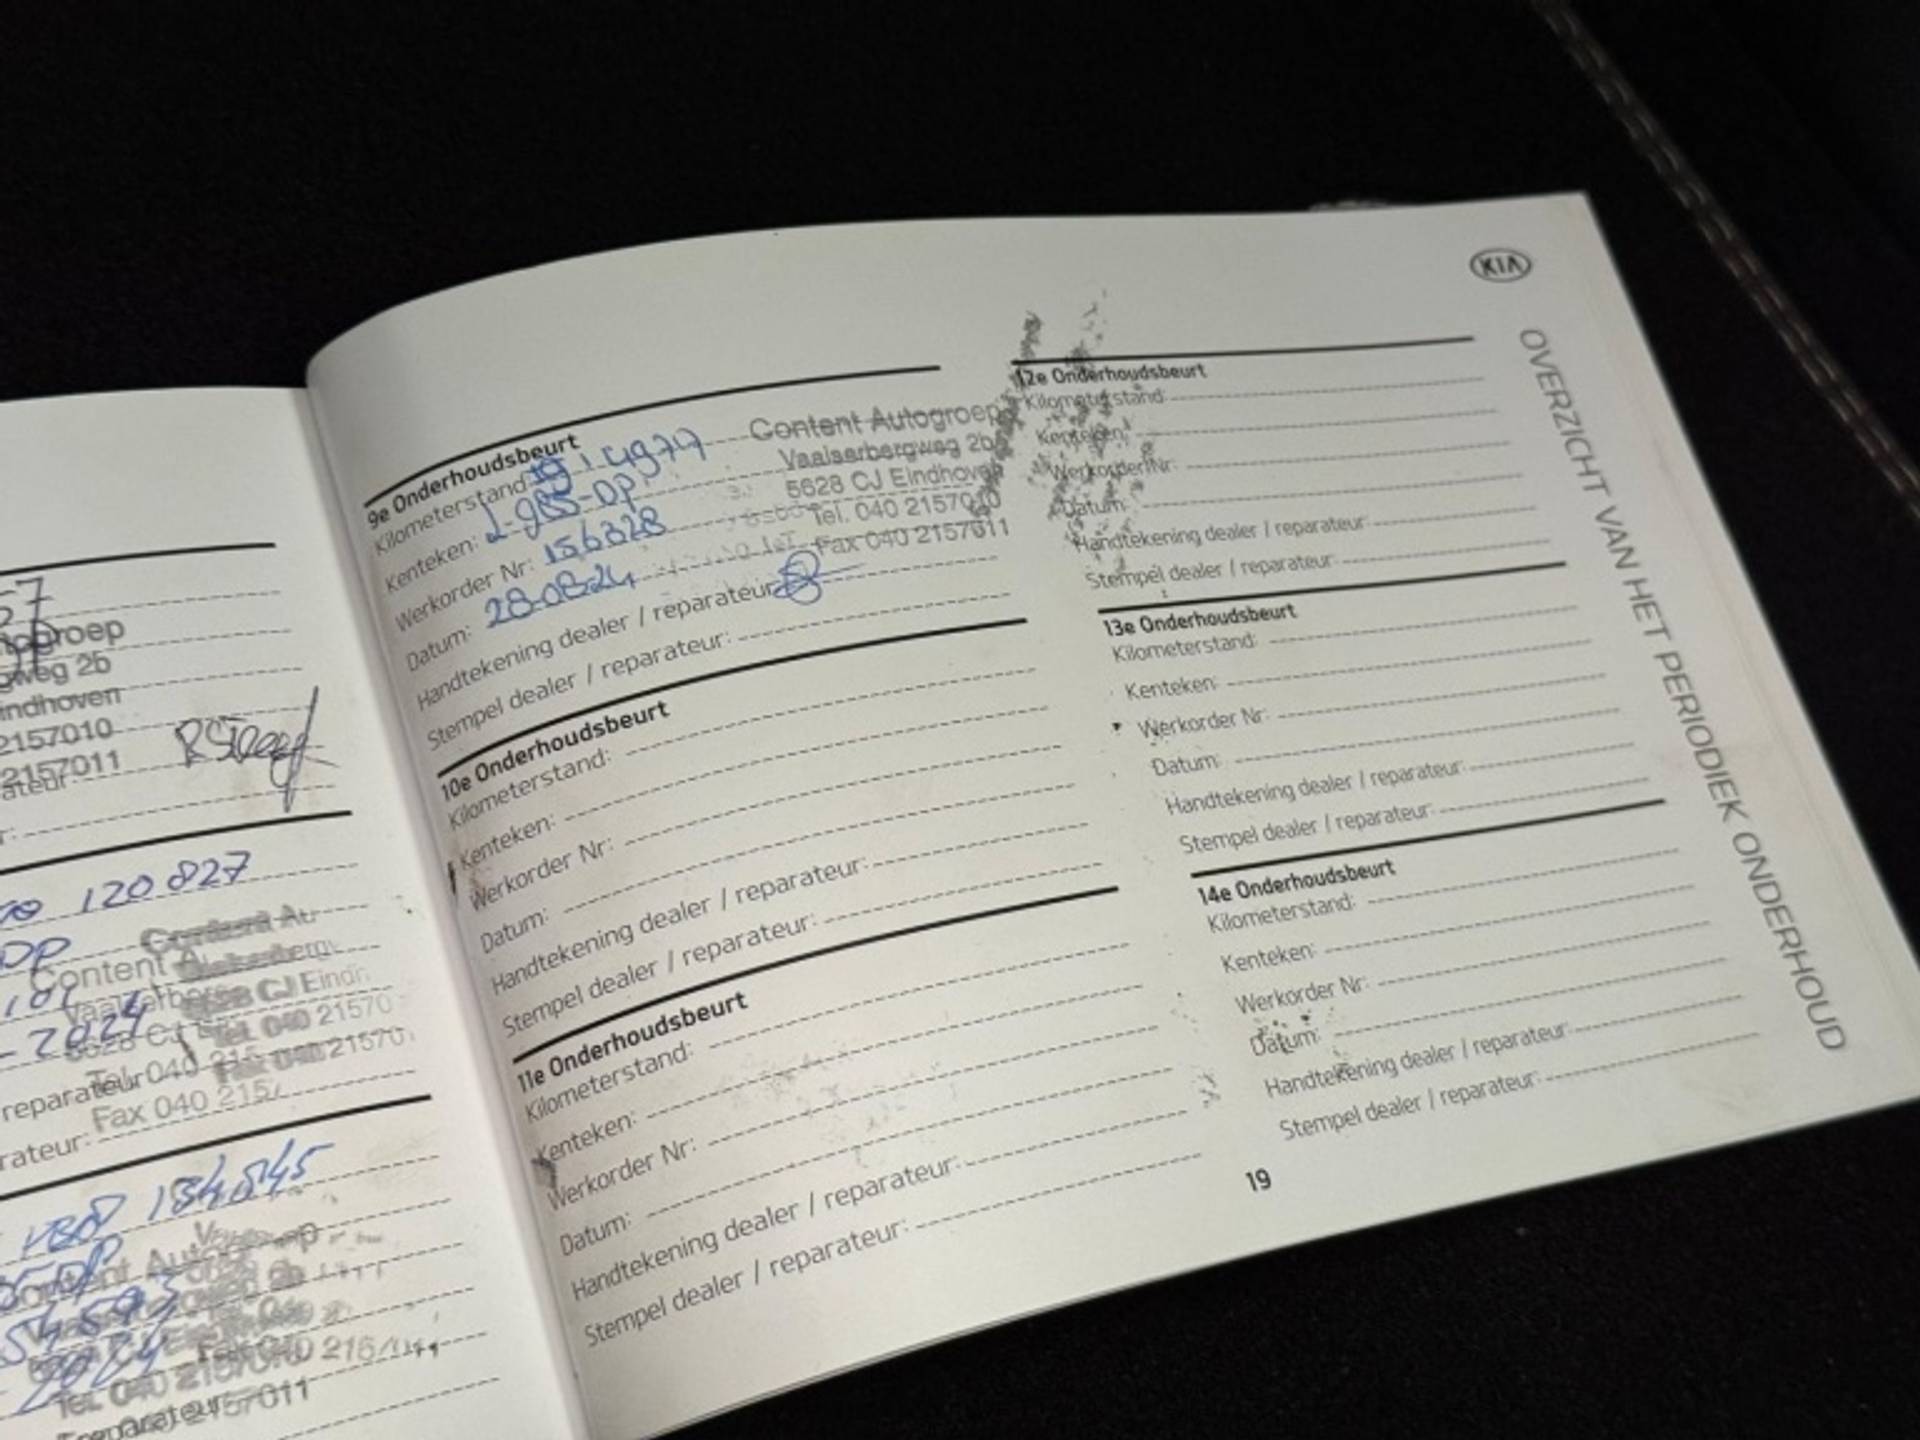 57
togroep
gweg 2b
indhoven
2157010
2157011
ateur
120827
DP
Content Au
Content A
5628 CJ Eindh
Tel. 040 21570
- 2024
Tel. 040 215
Fax 040 21570
reparateur
Fax 040 2157
rateur:
134545
Content Autogroep
Tel. 040 2157010
2157011
9e Onderhoudsbeurt
Kilometerstand
Kenteken: L-985-DP
Werkorder Nr: 156328
Datum: 28-08-24
Handtekening dealer / reparateur:
Stempel dealer / reparateur:
Content Autogroep
Vaalserbergweg 2b
5628 CJ Eindhoven
Tel. 040 2157010
Fax 040 2157011
10e Onderhoudsbeurt
Kilometerstand:
Kenteken:
Werkorder Nr:
Datum:
Handtekening dealer / reparateur:
Stempel dealer / reparateur:
11e Onderhoudsbeurt
Kilometerstand:
Kenteken:
Werkorder Nr:
Datum:
Handtekening dealer / reparateur:
Stempel dealer / reparateur:
KIA
12e Onderhoudsbeurt
Kilometerstand:
Kenteken:
Werkorder Nr:
Datum:
Handtekening dealer / reparateur:
Stempel dealer / reparateur:
13e Onderhoudsbeurt
Kilometerstand:
Kenteken:
Werkorder Nr:
Datum:
Handtekening dealer / reparateur:
Stempel dealer / reparateur:
14e Onderhoudsbeurt
Kilometerstand:
Kenteken:
Werkorder Nr:
Datum:
Handtekening dealer / reparateur:
Stempel dealer / reparateur:
OVERZICHT VAN HET PERIODIEK ONDERHOUD
19